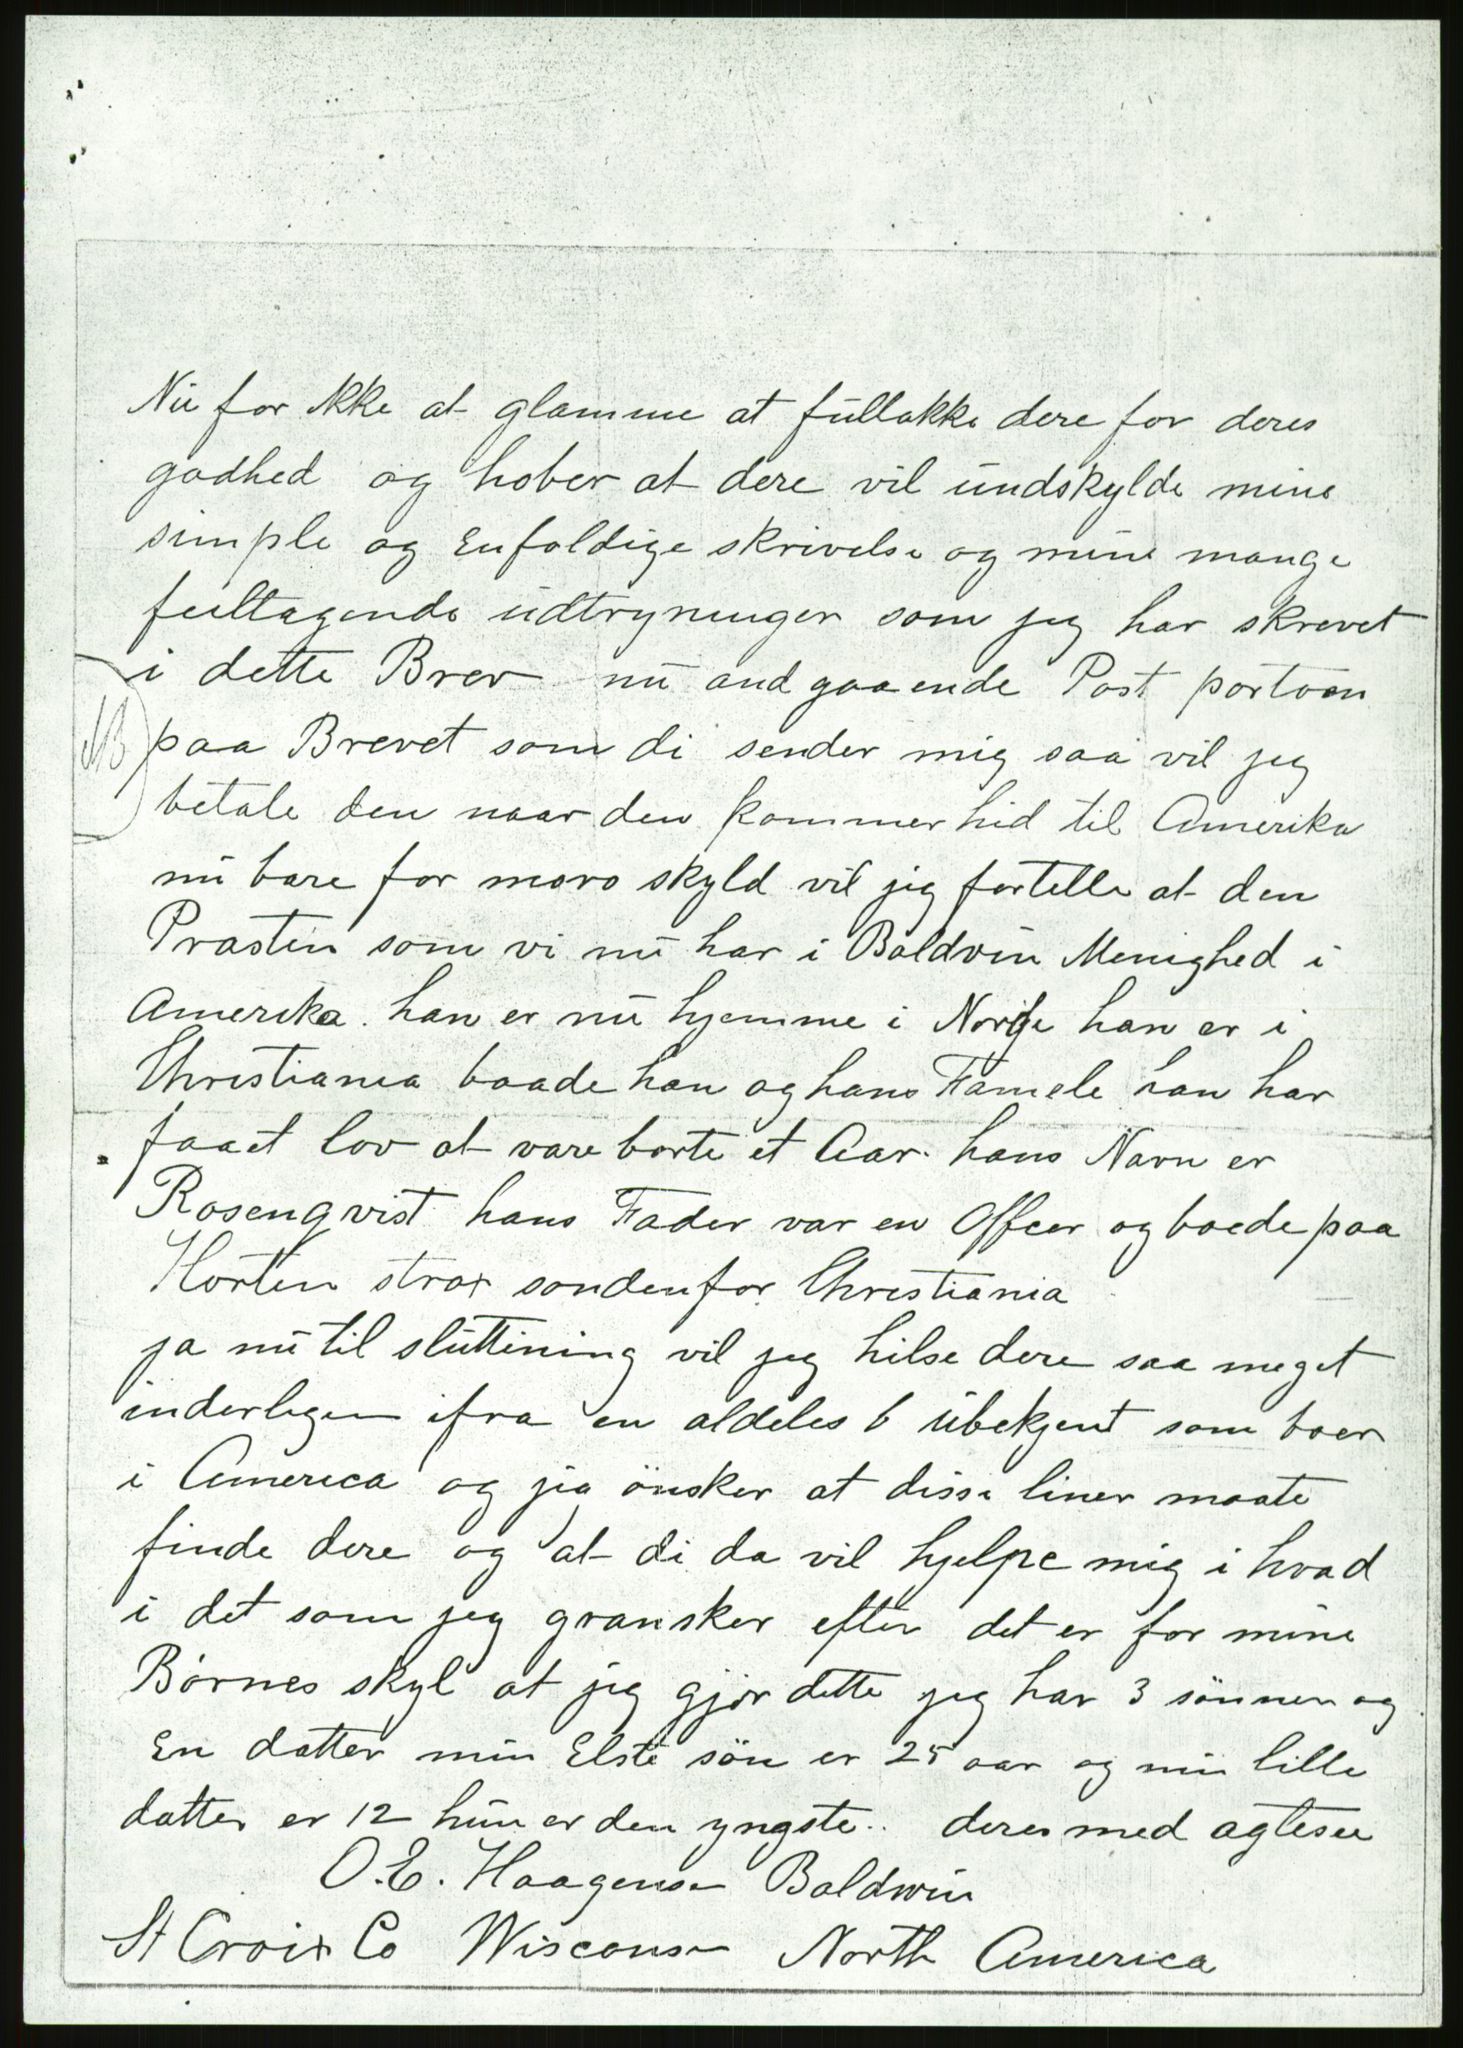 Nu for Ikke at glamme at fullakke dere for deres
godhed og hober at dere vil undskylde mine
simple og Enfoldige skrivelse og mine mange
feiltagende udtryninger som jeg har skrevet
i dette Brev nu and gaaende Post portoen
NB paa Brevet som di sender mig saa vil jeg
betale den naar den kommer hid til Amerika
nu bare for moro skyld vil jeg fortelle at den
Prasten som vi nu har i Baldvin Menighed i
Amerika. han er nu hjemme i Norge han er i
Christiania baade han og hans Famele han har
faaet lov at vare borte et Aar. hans Navn er
Rosenqvist hans Fader var en Offcer og boede paa
Horten strax sondenfor Christiania
ja nu til sluttining vil jeg hilse dere saa meget
inderligen ifra en aldeles ubekjent som boer
i America og jeg önsker at disse liner maate
finde dere og at di da vil hjelpe mig i hvad
i det som jeg gransker efter det er for mine
Börnes skyl at jeg gjör dette jeg har 3 sönner og
En datter min Elste sön er 25 aar og min lille
datter er 12 hun er den yngste.. deres med agtesee
O. E. Haagensen Baldwin
St Croix Co Wisconsin North America